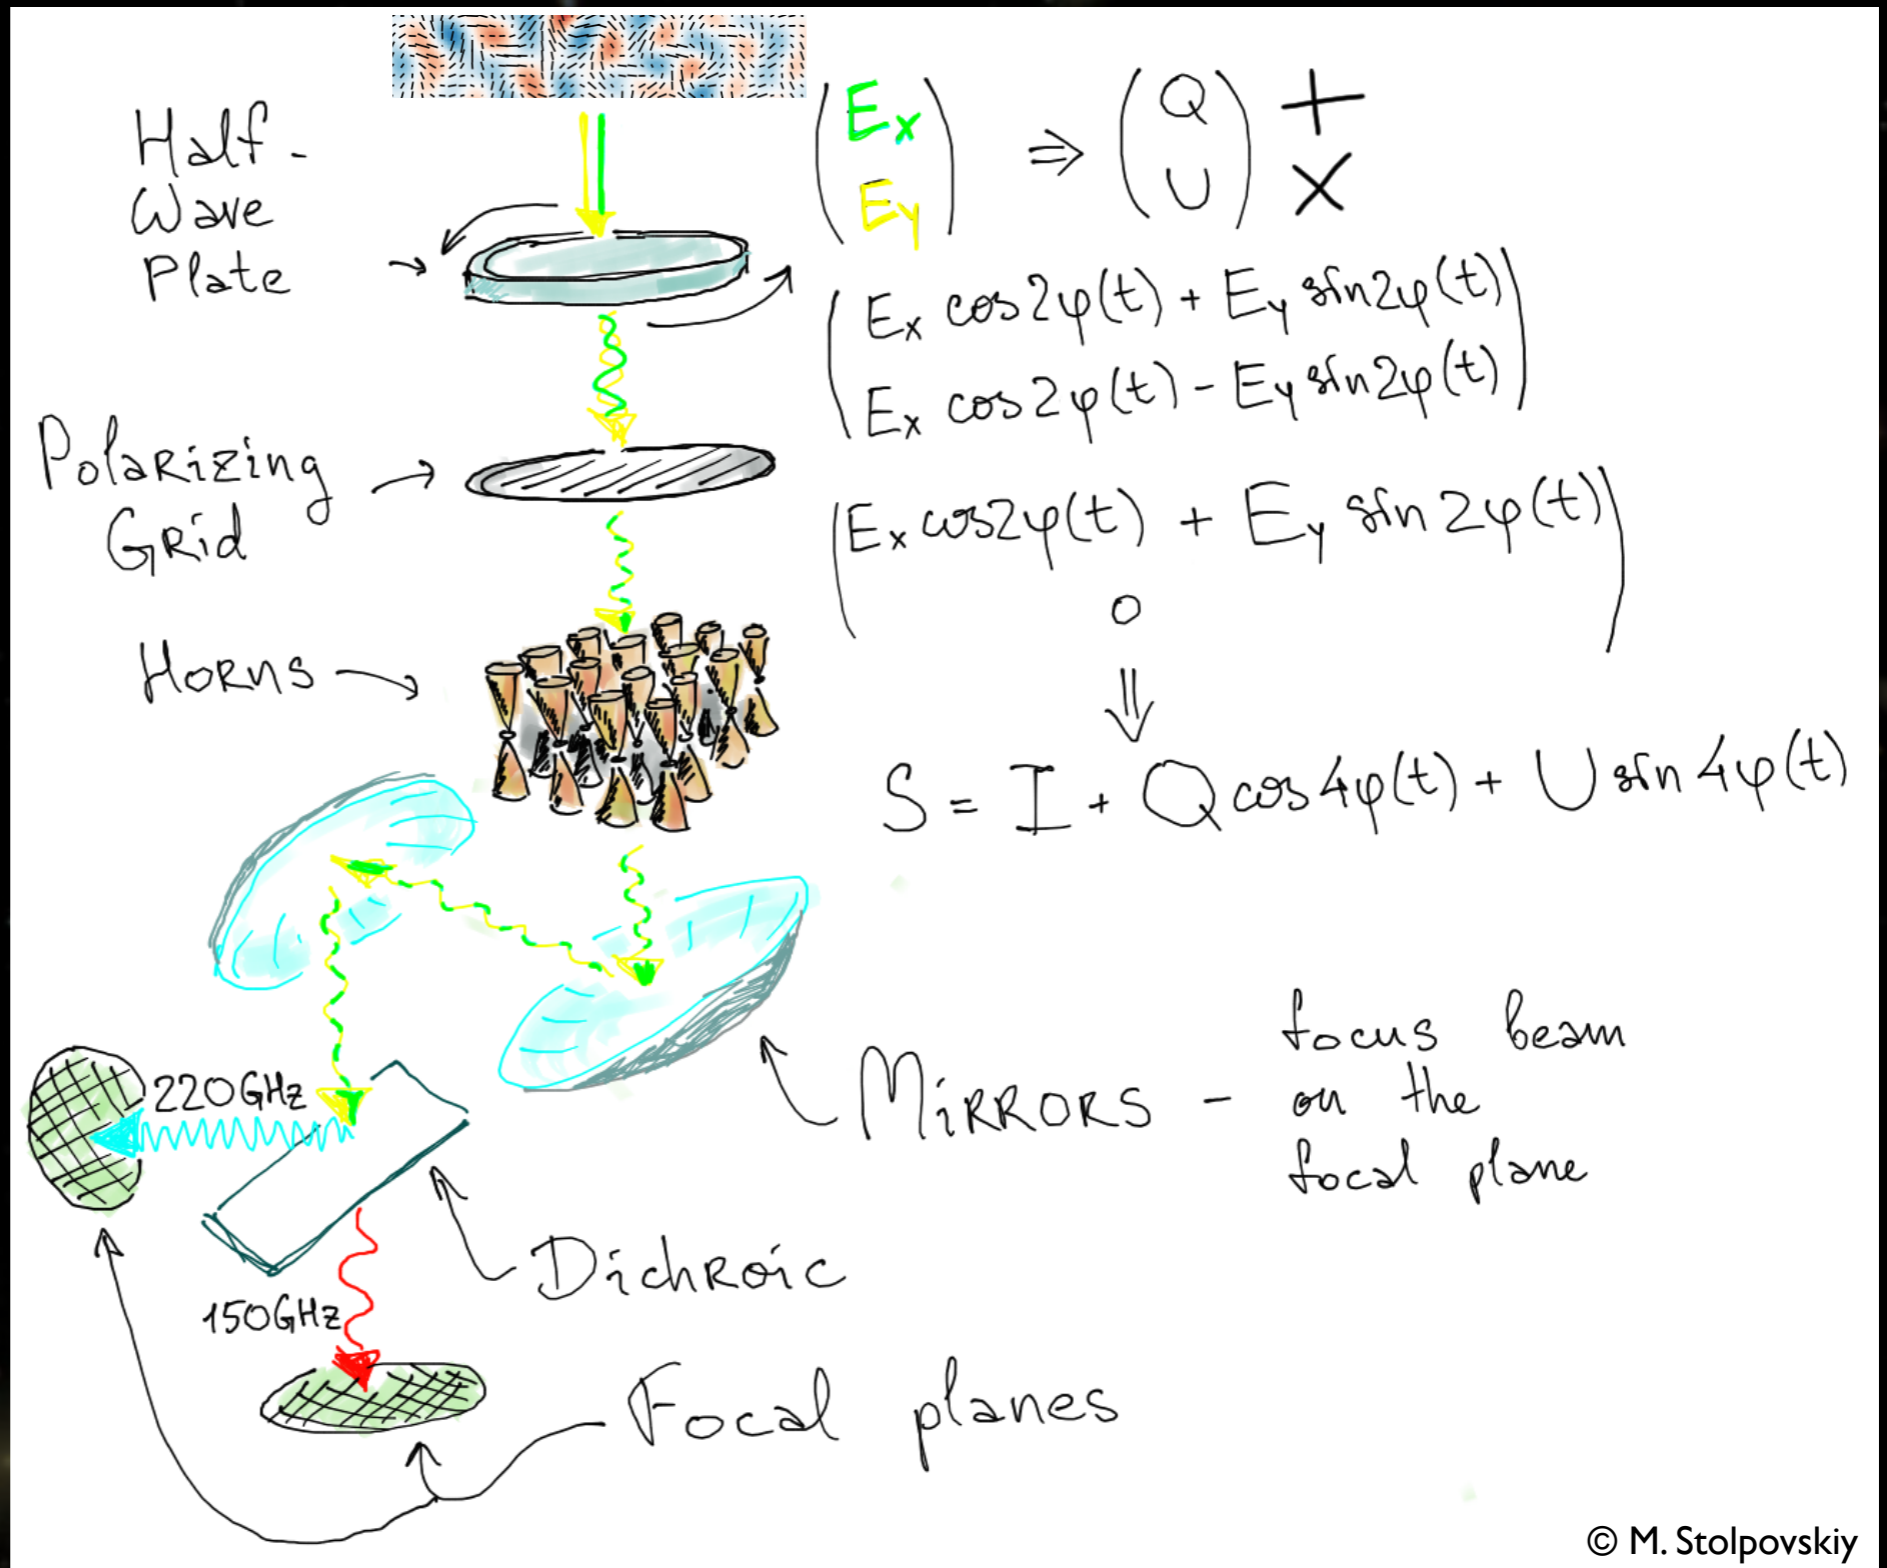 Half-
Wave
Plate
(Ex
Ey) ⇒ (Q
U) +
×
(Ex cos2φ(t) + Ey sin2φ(t)
Ex cos2φ(t) - Ey sin2φ(t))
Polarizing
Grid
(Ex cos2φ(t) + Ey sin2φ(t)
0)
⇓
Horns
S = I + Q cos4φ(t) + U sin4φ(t)
Mirrors - focus beam
on the
focal plane
220GHz
Dichroic
150GHz
Focal planes
© M. Stolpovskiy